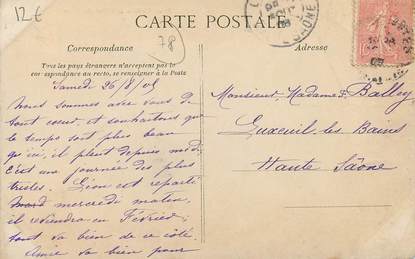 12€
78
CARTE POSTALE
RHONE
Correspondance
Tous les pays étrangers n'acceptent pas la
correspondance au recto, se renseigner à la Poste
Adresse
Samedi 26/8/05
Nous sommes avec vous de
tout cœur, et souhaitons que
le temps soit plus beau
qu'ici, il pleut depuis midi
C'est une journée des plus
tristes. Léon est reparti
mercredi matin,
il reviendra en Février
tout va bien de ce côté.
va bien pour
Monsieur, Madame Balley
Luxeuil les Bains
Haute Saône